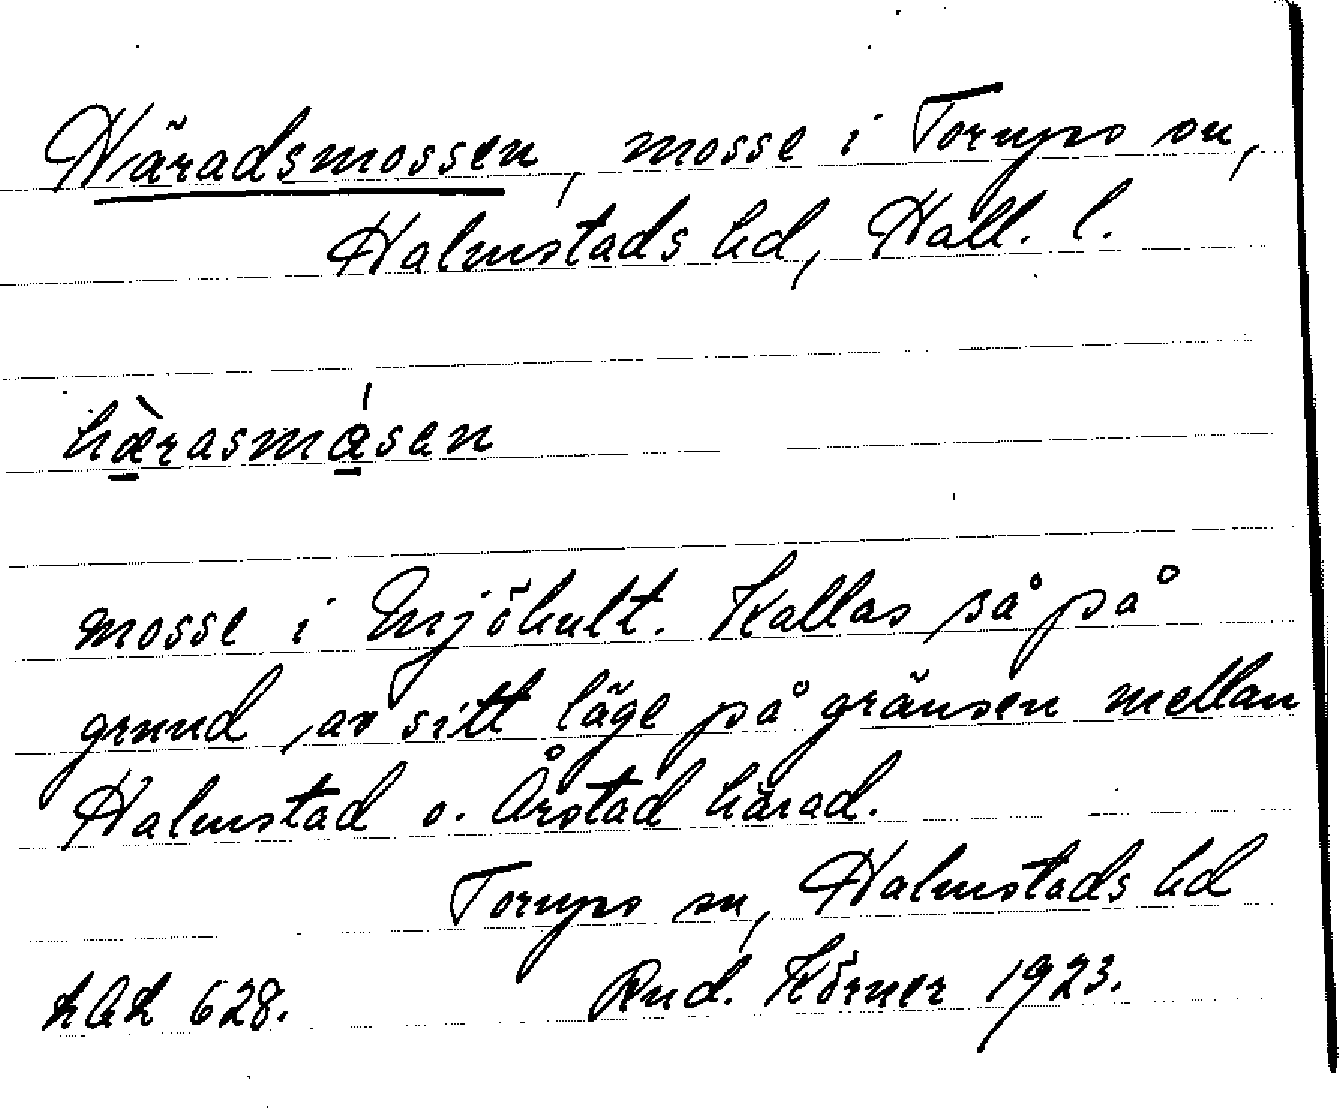 Häradsmossen, mosse i Torups sn,
Halmstads hd, Hall. l.
hæ̀rasmåsen
mosse i Mjöhult. Kallas så på
grund av sitt läge på gränsen mellan
Halmstad o. Årstad härad.
Torups sn, Halmstads hd
628. Rud. Körner 1923.